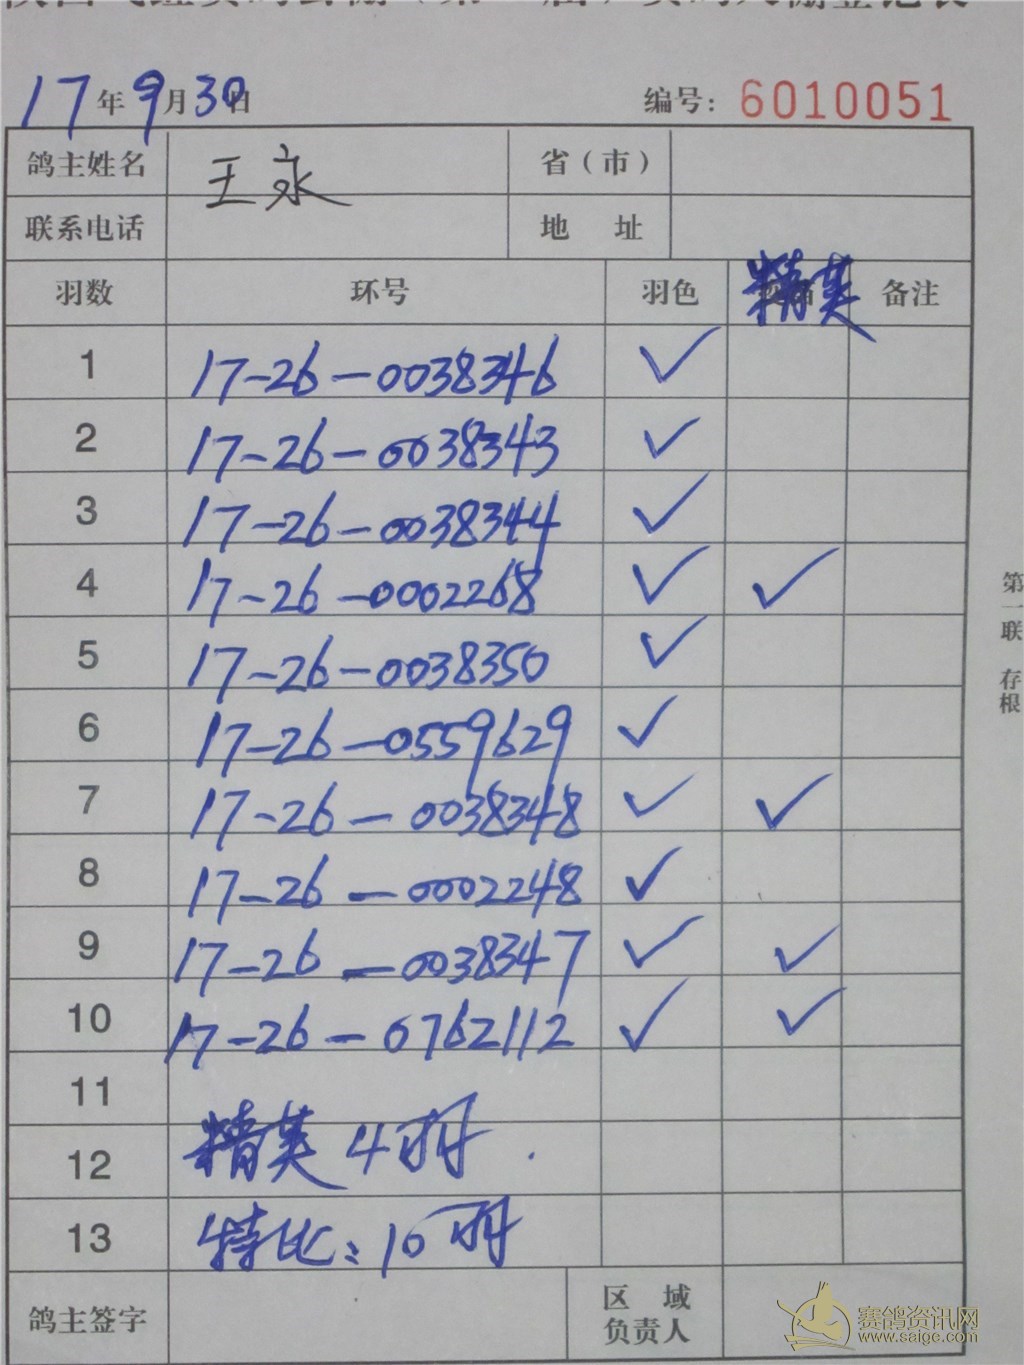 17年9月30日 编号: 6010051
鸽主姓名 王永 省（市）
联系电话 地 址
羽数 环号 羽色 精英 备注
1 17-26-0038346 ✓
2 17-26-0038343 ✓
3 17-26-0038344 ✓
4 17-26-0002268 ✓ ✓
5 17-26-0038350 ✓
6 17-26-0559629 ✓
7 17-26-0038348 ✓ ✓
8 17-26-0002248 ✓
9 17-26-0038347 ✓ ✓
10 17-26-0762112 ✓ ✓
11
12 精英4羽.
13 特比:10羽
鸽主签字 区 域
负责人
第一联 存根
赛鸽资讯网
www.saige.com